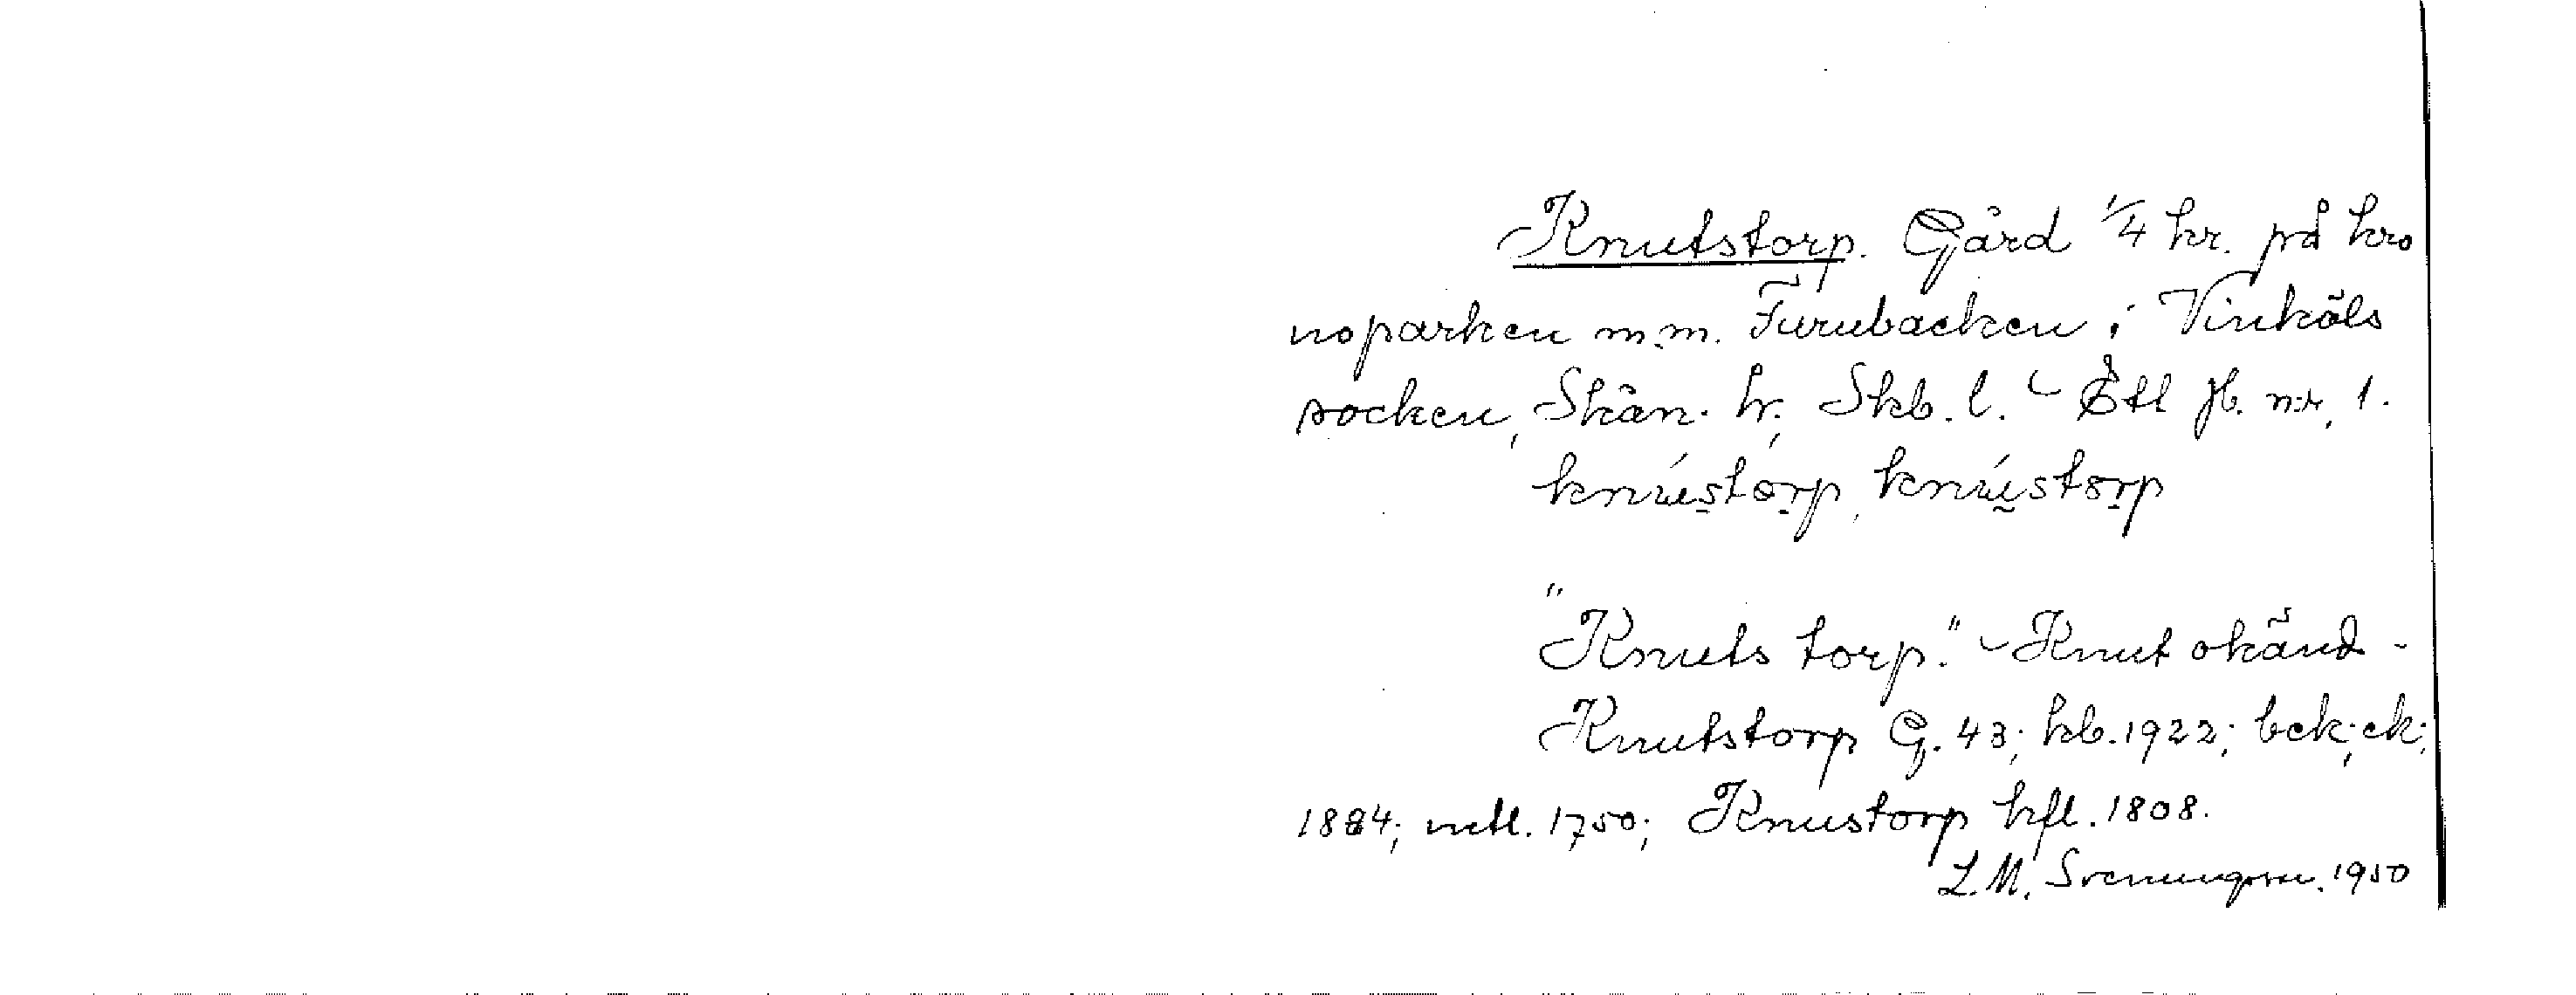 Knutstorp. Gård 1/4 kr. på kro
noparken m.m. Furubacken i Vinköls
socken, Skån. hr, Skb. l. - Ett jb. n:r, 1.
knústorp, knústorp
"Knuts torp." - Knut okänd -
Knutstorp G. 43; kb. 1922; bck; ek;
1884; mtl. 1750; Knustorp hfl. 1808.
L. M. Svenungsson. 1950